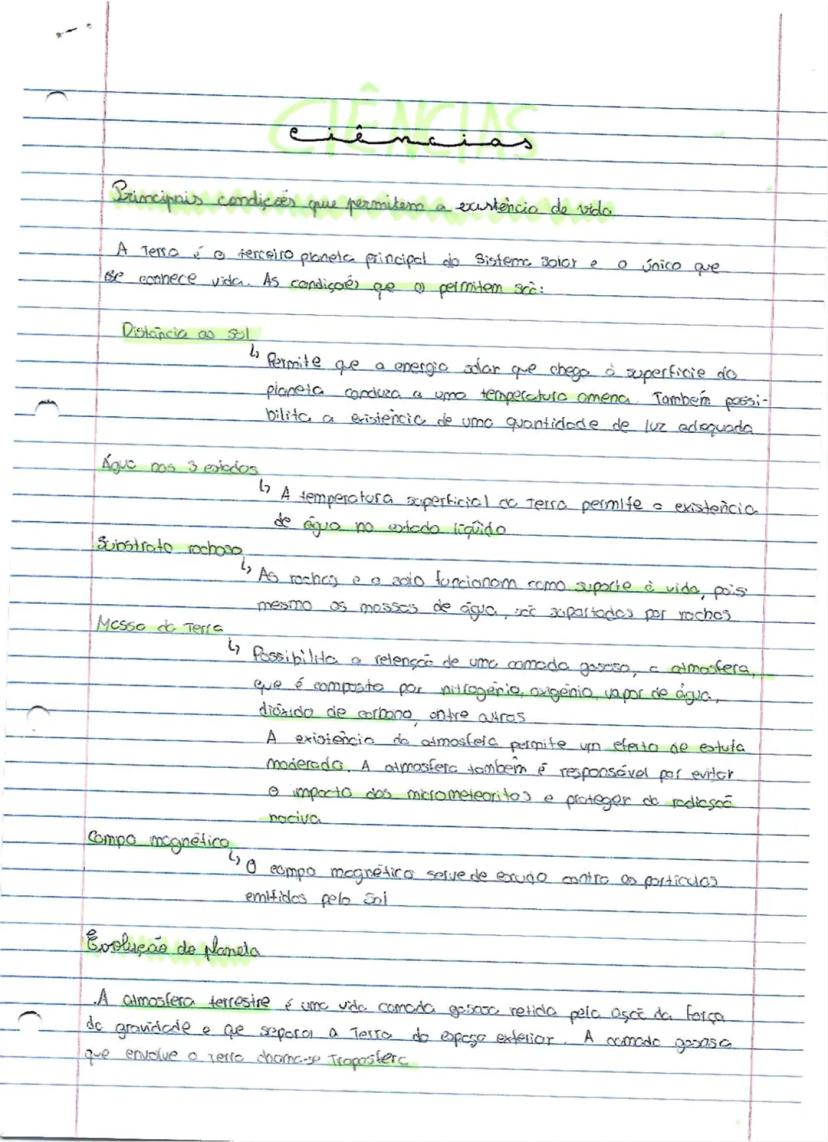 CIÊNCIAS
ciências
Principais condições que permitem a existência de vida
A Terra é o terceiro planeta principal do Sistema Solar e o único que
se conhece vida. As condições que o permitem são:
Distância ao sol
↳ Permite que a energia solar que chega à superfície do
planeta conduza a uma temperatura amena. Também possi-
bilita a existência de uma quantidade de luz adequada
Água nos 3 estados
↳ A temperatura superficial da Terra permite a existência
de água no estado líquido
Substrato rochoso
↳ As rochas e o solo funcionam como suporte à vida, pois
mesmo as massas de água, são suportadas por rochas
Massa da Terra
↳ Possibilita a retenção de uma camada gasosa, a atmosfera,
que é composta por nitrogénio, oxigénio, vapor de água,
dióxido de carbono, entre outros
A existência da atmosfera permite um efeito de estufa
moderado. A atmosfera também é responsável por evitar
o impacto dos micrometeoritos e proteger da radiação
nociva
Campo magnético
↳ O campo magnético serve de escudo contra as partículas
emitidas pelo Sol
Evolução do planeta
A atmosfera terrestre é uma vida camada gasosa retida pela ação da força
da gravidade e que separa a Terra do espaço exterior. A camada gasosa
que envolve a Terra chama-se Troposfera